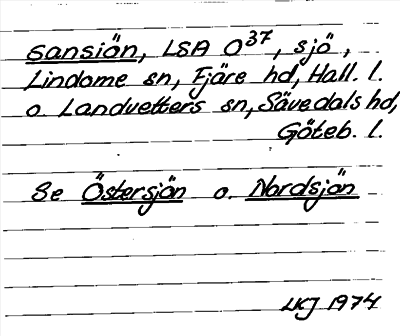 Sansiän, LSA O³⁷, sjö,
Lindome sn, Fjäre hd, Hall. l.
o. Landvetters sn, Sävedals hd,
Göteb. l.
Se Östersjön o. Nordsjön
LKJ 1974